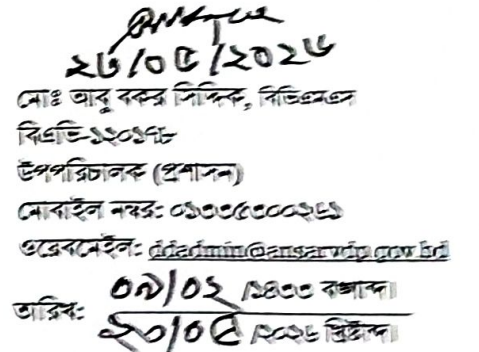 ২০/০৫/২০২৬
মোঃ আবু বকর সিদ্দিক, বিভিএমএস
বিএভি-১২০১৭৮
উপপরিচালক (প্রশাসন)
মোবাইল নম্বর: ০১৭৩৫৩০০২৬১
ওয়েবমেইল: ddadmin@ansarvdp.gov.bd
তারিখ: ০৬/০২/১৪৩৩ বঙ্গাব্দ।
২০/০৫/২০২৬ খ্রিষ্টাব্দ।